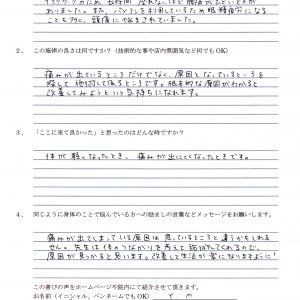 デスクワークのため、長時間座れないほど腰痛がひどいときが
ありました。また、パソコンを利用しているため眼精疲労になる
ことも多く、頭痛になやまされていました。
2. この施術の良さは何ですか？（技術的な事や店内雰囲気など何でもOK）
痛みが出ているところだけでなく、原因となっているところを
探して施術して頂けるところです。根本的な原因がわかると
改善してみようという気持ちになれます。
3. 「ここに来て良かった」と思ったのはどんな時ですか？
体が軽くなったとき、痛みが出にくくなったときです。
4. 同じように身体のことで悩んでいる方への励ましの言葉などメッセージをお願いします。
痛みが出てしまっている原因は思っているところと違うかもしれま
せん。先生は体のつながりを考えて施術してくれるので、
原因が見つかると思います。改善して生活が楽になりますように！
この喜びの声をホームページや院内にて紹介させて頂きます。
お名前（イニシャル、ペンネームでもOK） Y M